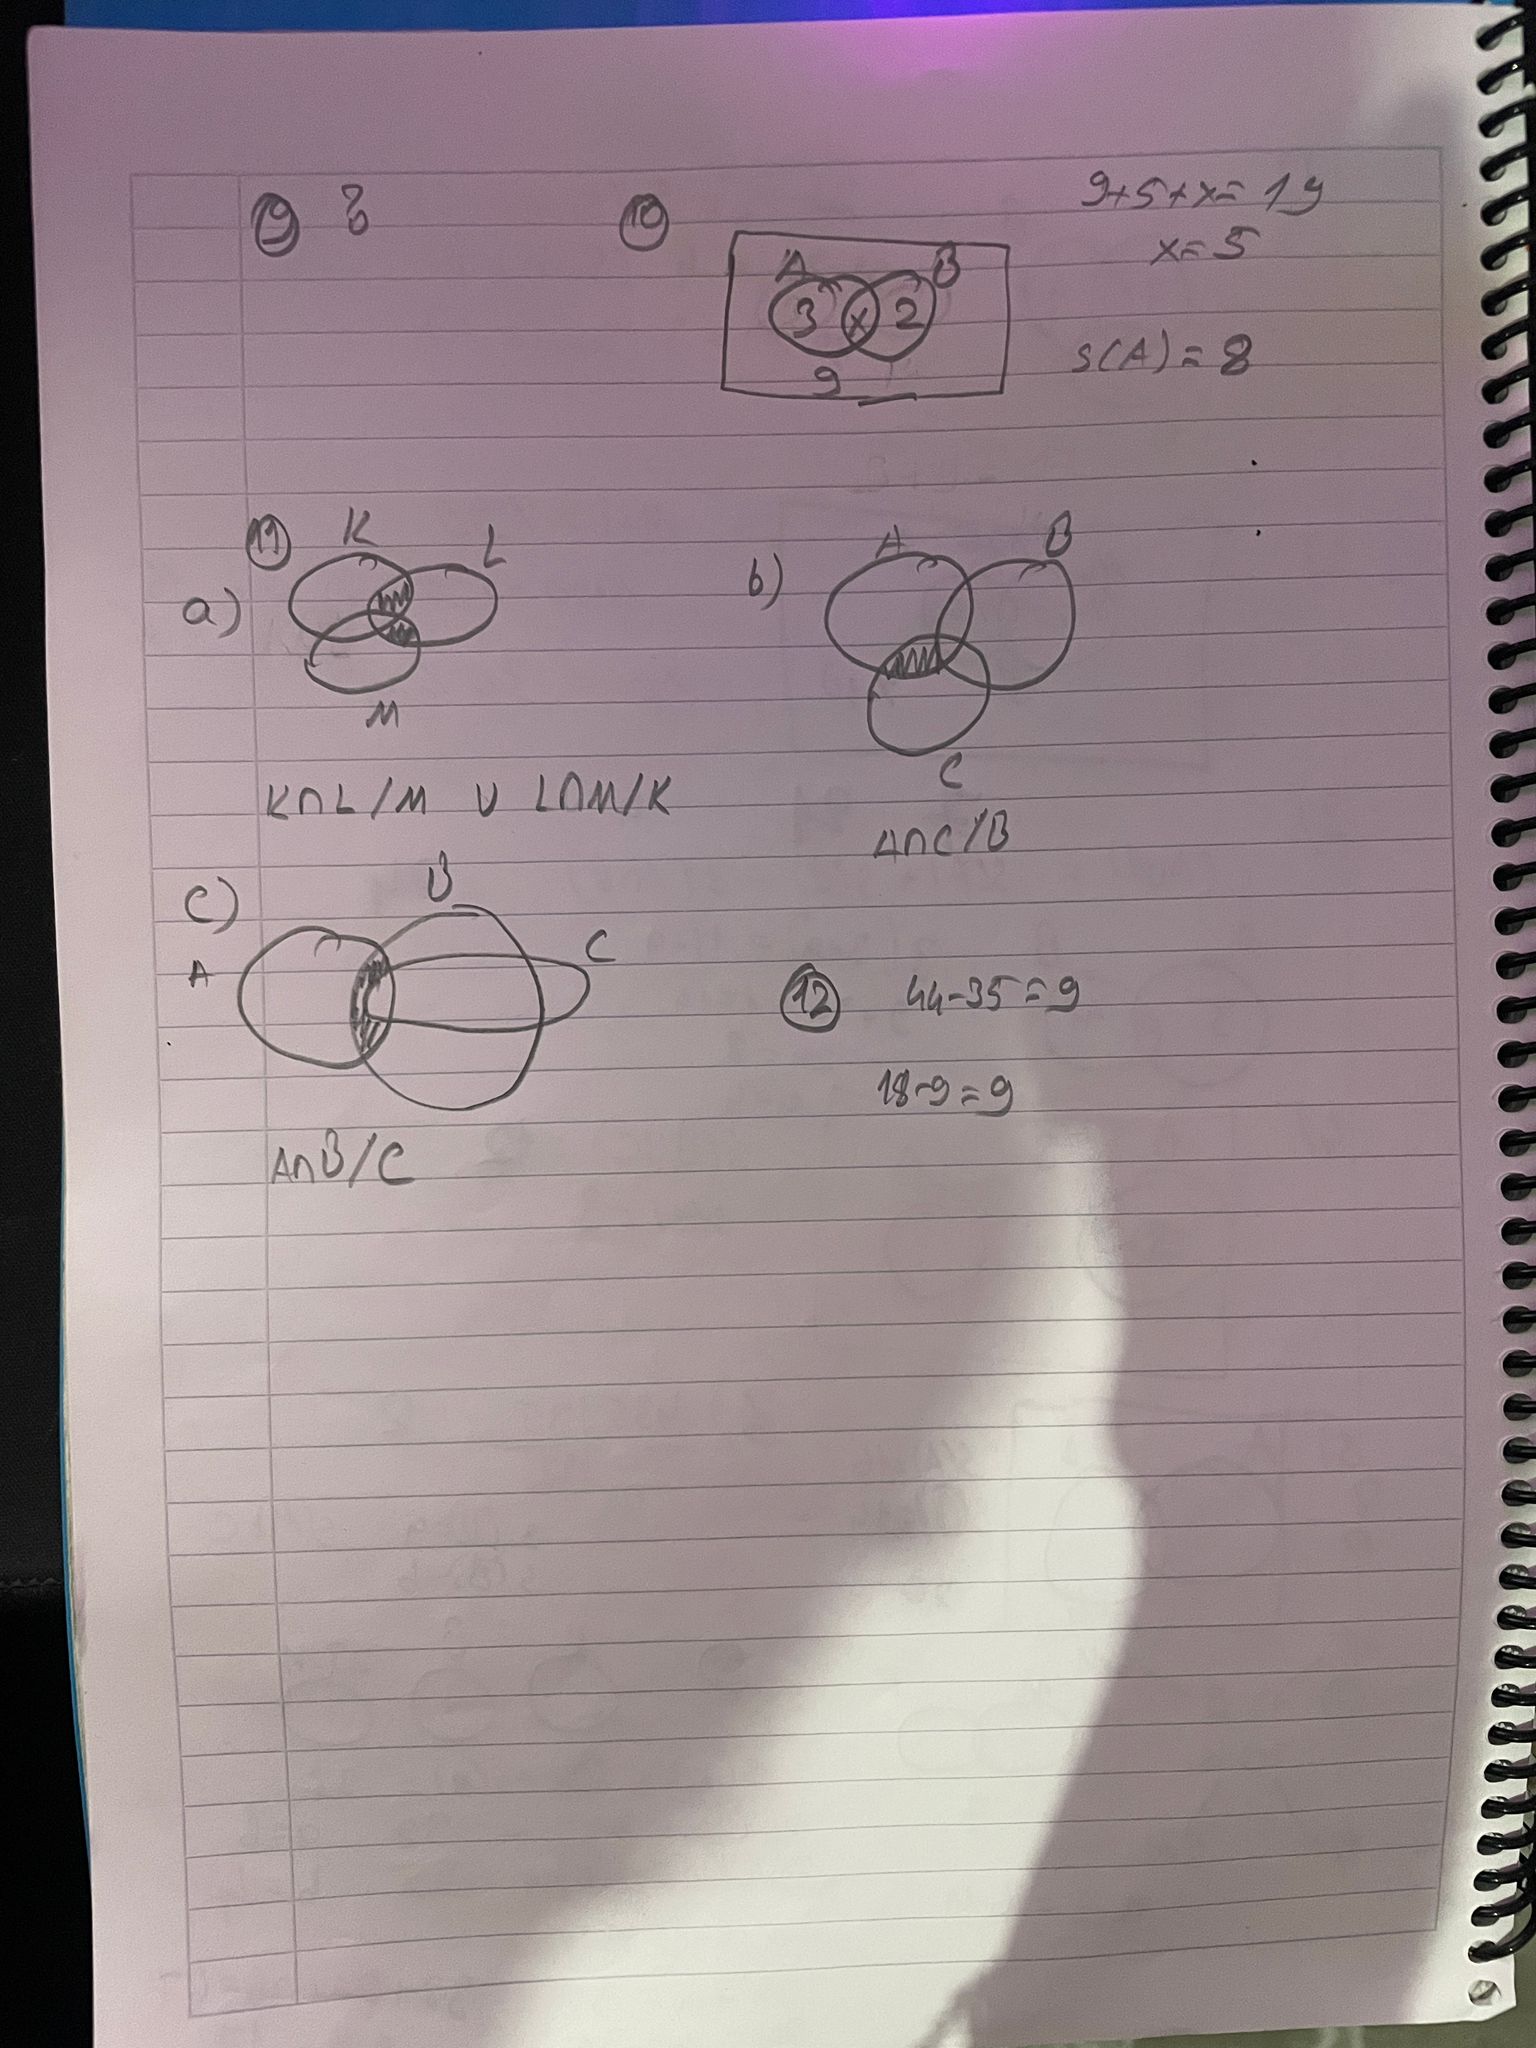 9 ?
10
9+5+x=19
x=5
A B
3 x 2
9
s(A)=8
11
a)
K L
M
K∩L/M ∪ L∩M/K
b)
A B
C
A∩C/B
c)
A B C
A∩B/C
12 44-35=9
18-9=9